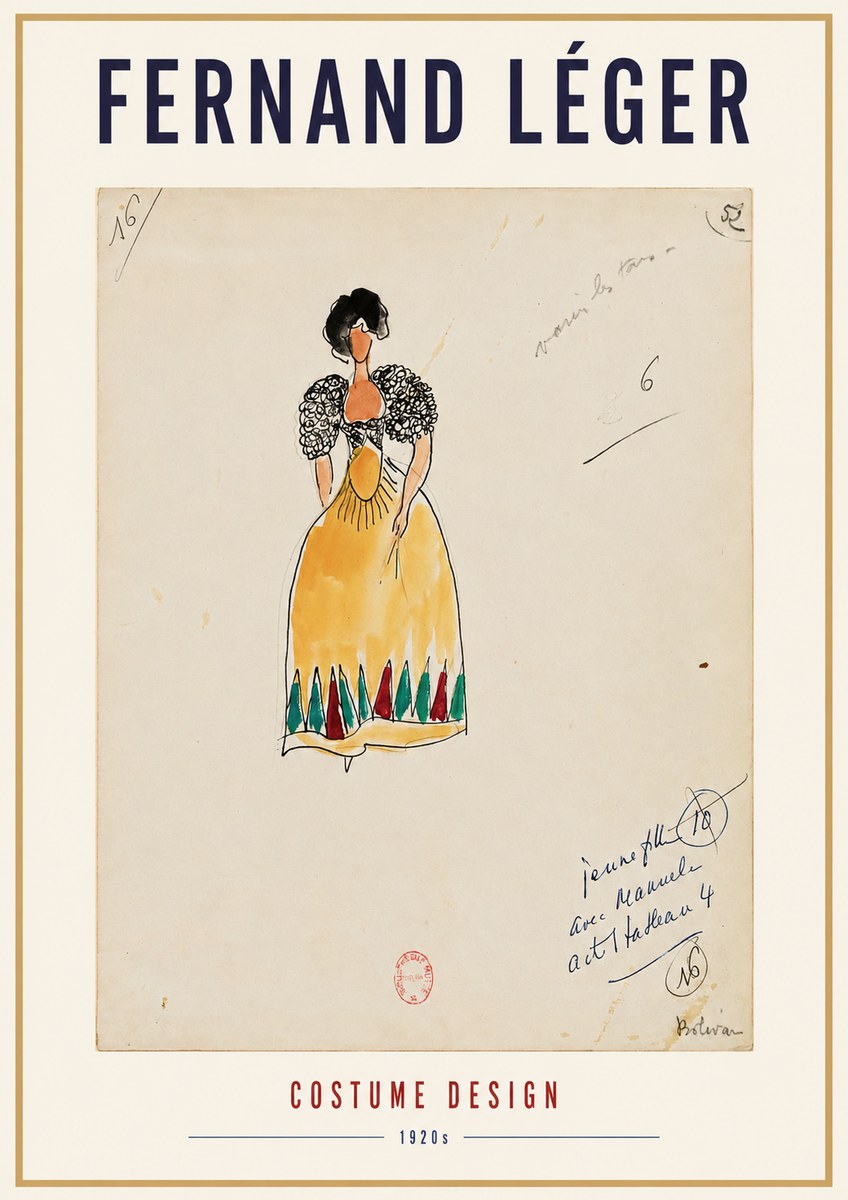 FERNAND LÉGER
16
52
varier les tons -
6
jeune fille 10
avec Manuela
act 1 tableau 4
16
Bolivar
COSTUME DESIGN
1920s